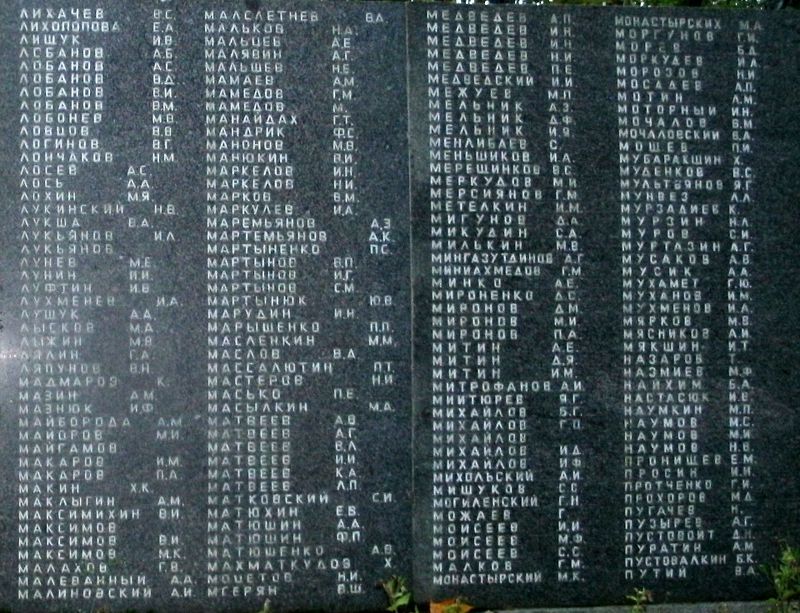 ЛИХАЧЕВ В.С.
ЛИХОПОПОВА Е.А.
ЛИЩУК И.В.
ЛОБАНОВ А.Б.
ЛОБАНОВ А.С.
ЛОБАНОВ В.Д.
ЛОБАНОВ В.И.
ЛОБАНОВ В.М.
ЛОБОНЕВ М.В.
ЛОВЦОВ В.В.
ЛОГИНОВ В.Г.
ЛОНЧАКОВ Н.М.
ЛОСЕВ А.С.
ЛОСЬ А.А.
ЛОХИН М.Я.
ЛУКИНСКИЙ Н.В.
ЛУКША В.А.
ЛУКЬЯНОВ И.Л.
ЛУКЬЯНОВ
ЛУНЕВ М.Е.
ЛУНИН П.И.
ЛУФТИН И.В.
ЛУХМЕНЕВ И.А.
ЛУЩУК А.Д.
ЛЫСКОВ М.А.
ЛЫЖИН М.В.
ЛЯЛИН Г.А.
ЛЯПУНОВ В.Н.
МАДМАРОВ К.
МАЗИН А.М.
МАЗНЮК И.Ф.
МАЙБОРОДА А.М.
МАЙОРОВ М.И.
МАЙГАМОВ
МАКАРОВ И.М.
МАКАРОВ П.А.
МАКИН Х.К.
МАКЛЫГИН А.М.
МАКСИМИХИН В.И.
МАКСИМОВ
МАКСИМОВ В.И.
МАКСИМОВ М.К.
МАЛАХОВ Г.В.
МАЛЕВАННЫЙ А.А.
МАЛИНОВСКИЙ А.И.
МАЛСЛЕТНЕВ В.А.
МАЛЬКОВ Н.А.
МАЛЬЦЕВ А.Е.
МАЛЯВИН А.Г.
МАЛЬЦЕВ Н.Е.
МАМАЕВ А.М.
МАМЕДОВ Г.М.
МАМЕДОВ М.
МАНАЙДАХ Г.Т.
МАНДРИК Ф.С.
МАНОНОВ М.В.
МАНЮКИН В.И.
МАРКЕЛОВ И.Н.
МАРКЕЛОВ Н.И.
МАРКОВ Н.
МАРКУЛЕВ И.А.
МАРЕМЬЯНОВ А.З.
МАРТЕМЬЯНОВ А.К.
МАРТЫНЕНКО П.С.
МАРТЫНОВ В.П.
МАРТЫНОВ И.Г.
МАРТЫНОВ С.М.
МАРТЫНЮК Ю.В.
МАРУДИН И.Н.
МАРЫШЕНКО П.П.
МАСЛЕНКИН М.М.
МАСЛОВ В.А.
МАССАЛЮТИН П.Т.
МАСТЕРОВ Н.И.
МАСЬКО П.Е.
МАСЫЛКИН М.А.
МАТВЕЕВ А.В.
МАТВЕЕВ А.Г.
МАТВЕЕВ В.А.
МАТВЕЕВ И.И.
МАТВЕЕВ К.А.
МАТВЕЕВ Л.П.
МАТКОВСКИЙ С.И.
МАТЮХИН Е.В.
МАТЮШИН А.А.
МАТЮШИН Ф.П.
МАТЮШЕНКО А.В.
МАХМАТКУДОВ Х.
МОЦЕТОВ Н.И.
МСЕРЯН В.Ш.
МЕДВЕДЕВ А.П.
МЕДВЕДЕВ И.Н.
МЕДВЕДЕВ И.Н.
МЕДВЕДЕВ Н.
МЕДВЕДЕВ П.Е.
МЕДВЕДСКИЙ И.И.
МЕЖУЕВ М.П.
МЕЛЬНИК А.З.
МЕЛЬНИК Д.Ф.
МЕЛЬНИК И.Я.
МЕНЛИБАЕВ С.
МЕНЬШИКОВ И.А.
МЕРЕЩИНКОВ В.С.
МЕРКУДОВ М.И.
МЕРСИЯНОВ Г.М.
МЕТЕЛКИН И.М.
МИГУНОВ Д.А.
МИКУДИН С.А.
МИЛЬКИН М.В.
МИНГАЗУТДИНОВ А.Г.
МИНИАХМЕДОВ Г.М.
МИНКО А.Е.
МИРОНЕНКО Д.С.
МИРОНОВ Д.М.
МИРОНОВ М.И.
МИРОНОВ П.А.
МИТИН А.Е.
МИТИН Д.Я.
МИТИН И.М.
МИТРОФАНОВ А.И.
МИИТЮРЕВ Я.Г.
МИХАЙЛОВ Б.Г.
МИХАЙЛОВ Г.П.
МИХАЙЛОВ
МИХАЙЛОВ И.Д.
МИХАЙЛОВ И.Ф.
МИХОЛЬСКИЙ А.И.
МИЩУКОВ С.С.
МОГИЛЕНСКИЙ Г.Н.
МОЖАЕВ Г.
МОИСЕЕВ И.И.
МОИСЕЕВ О.Г.
МОИСЕЕВ С.С.
МАЛКОВ Г.М.
МОНАСТЫРСКИЙ М.К.
МОНАСТЫРСКИХ М.А.
МОРГУНОВ Г.И.
МОРЕВ Б.Д.
МОРКУДЕВ И.А.
МОРОЗОВ Н.И.
МОСАДЕВ А.П.
МОТИН А.М.
МОТОРНЫЙ И.Н.
МОЧАЛОВ В.М.
МОЧАЛОВСКИЙ В.А.
МОШЕВ П.И.
МУБАРАКШИН Х.
МУДЕНКОВ В.С.
МУЛЬТЯНОВ Я.Г.
МУНВЕЗ Л.А.
МУРЗАДИЕВ К.
МУРЗИН Б.А.
МУРОВ С.И.
МУРТАЗИН А.Г.
МУСАКОВ А.В.
МУСИК А.А.
МУХАМЕТ Г.Ю.
МУХАНОВ И.М.
МУХМЕНОВ И.А.
МЯРКОВ М.В.
МЯСНИКОВ А.И.
МЯКШИН Г.Т.
НАЗАРОВ Т.
НАЗМИЕВ М.Ф.
НАЙХИМ Б.А.
НАСТАСЮК И.В.
НАУМКИН М.П.
НАУМОВ М.С.
НАУМОВ М.И.
НАУМОВ Н.В.
ПРОНИЩЕВ Е.М.
ПРОСКИН И.И.
ПРОТЧЕНКО Г.И.
ПРОХОРОВ М.Д.
ПУГАЧЕВ Н.
ПУЗЫРЕВ А.Г.
ПУСТОВОИТ Д.Н.
ПУРАТИН А.М.
ПУСТОВАЛКИН Б.К.
ПУТИЙ В.А.